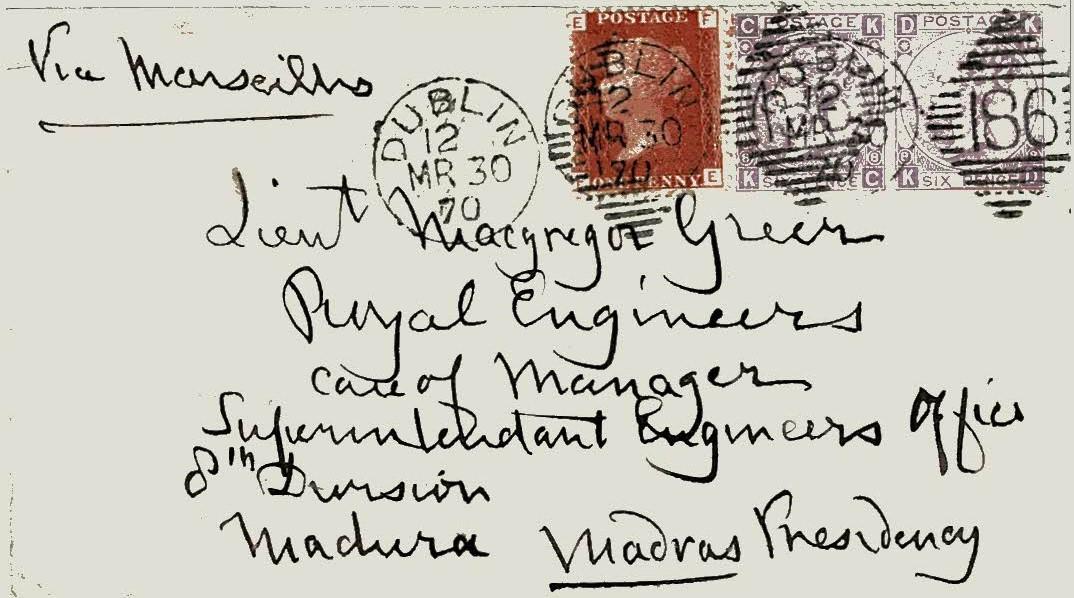 Via Marseilles
E POSTAGE F
C POSTAGE K
D POSTAGE K
DUBLIN
12
MR 30
70
DUBLIN
12
MR 30
70
12
MR 30
70
186
PENNY E
K SIX PENCE C
K SIX PENCE D
Lieut Macgregor Greer
Royal Engineers
care of Manager
Superintendant Engineers Office
8th Division
Madura Madras Presidency